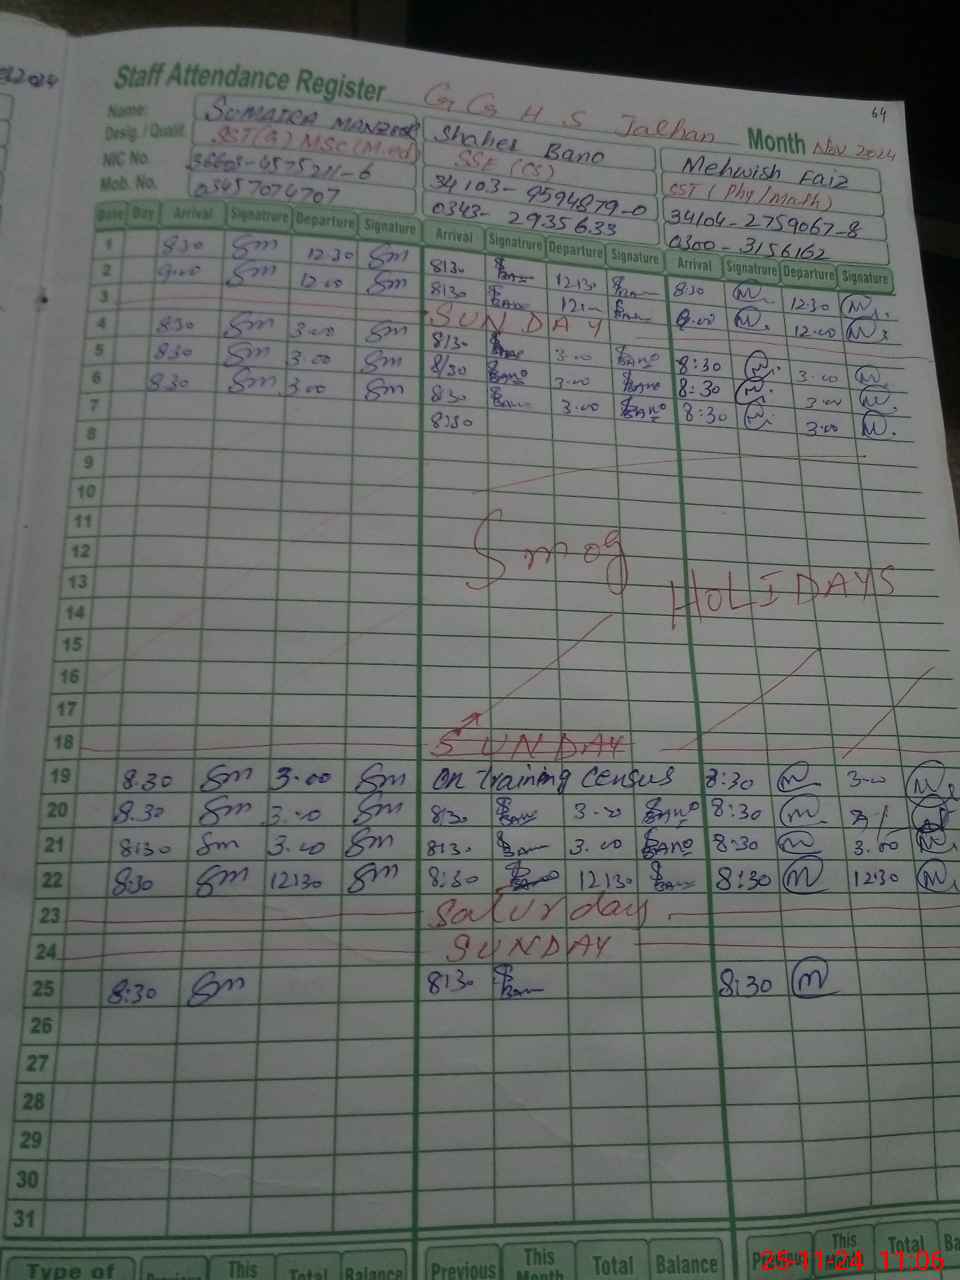 Staff Attendance Register G G H S Jalhan Month Nov 2024
64
Name: SUMAIRA MANZOOR Shahee Bano Mehwish Faiz
Desig. / Qualif. SST(G) MSC (M.ed) SSE (CS) SST ( Phy/Math)
NIC No. 34103-9594879-0 34104-2759067-8
Mob. No. 03457074707 0343-2935633 0300-3156162
Date Day Arrival Signatrure Departure Signature Arrival Signatrure Departure Signature Arrival Signatrure Departure Signature
1 8:30 Sm 12.30 Sm 8:30 Bano 12:30 Bano 8:30 M. 12:30 M.
2 9:00 Sm 12.00 Sm 8:30 Bano 12:00 Bano 9:00 M. 12:00 M.
3 SUNDAY
4 8:30 Sm 3:00 Sm 8:30 Bano 3:00 Bano 8:30 M. 3:00 M.
5 8:30 Sm 3:00 Sm 8:30 Bano 3:00 Bano 8:30 M. 3:00 M.
6 8:30 Sm 3:00 Sm 8:30 Bano 3:00 Bano 8:30 M. 3:00 M.
7 8:30
8
9
10
11
12 Smog
13 HOLIDAYS
14
15
16
17
18 SUNDAY
19 8.30 Sm 3.00 Sm On Training Census 8:30 M 3:00 M.
20 8.30 Sm 3.00 Sm 8:30 Bano 3:00 Bano 8:30 M.
21 8:30 Sm 3.00 Sm 8:30 Bano 3:00 Bano 8:30 M 3.00 M.
22 8:30 Sm 12:30 Sm 8:30 Bano 12:30 Bano 8:30 M 12:30 M.
23 Saturday
24 SUNDAY
25 8:30 Sm 8:30 Bano 8:30 M
26
27
28
29
30
31
Type of This Total Balance Previous This Month Total Balance Previous This Month Total
25-11-24 11:06